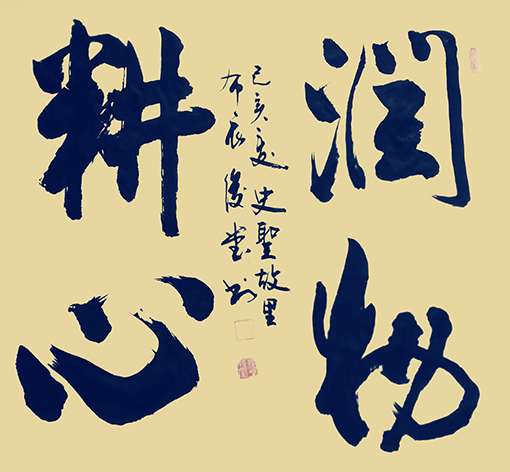 润物
耕心
己亥夏史聖故里
布衣俊堂书